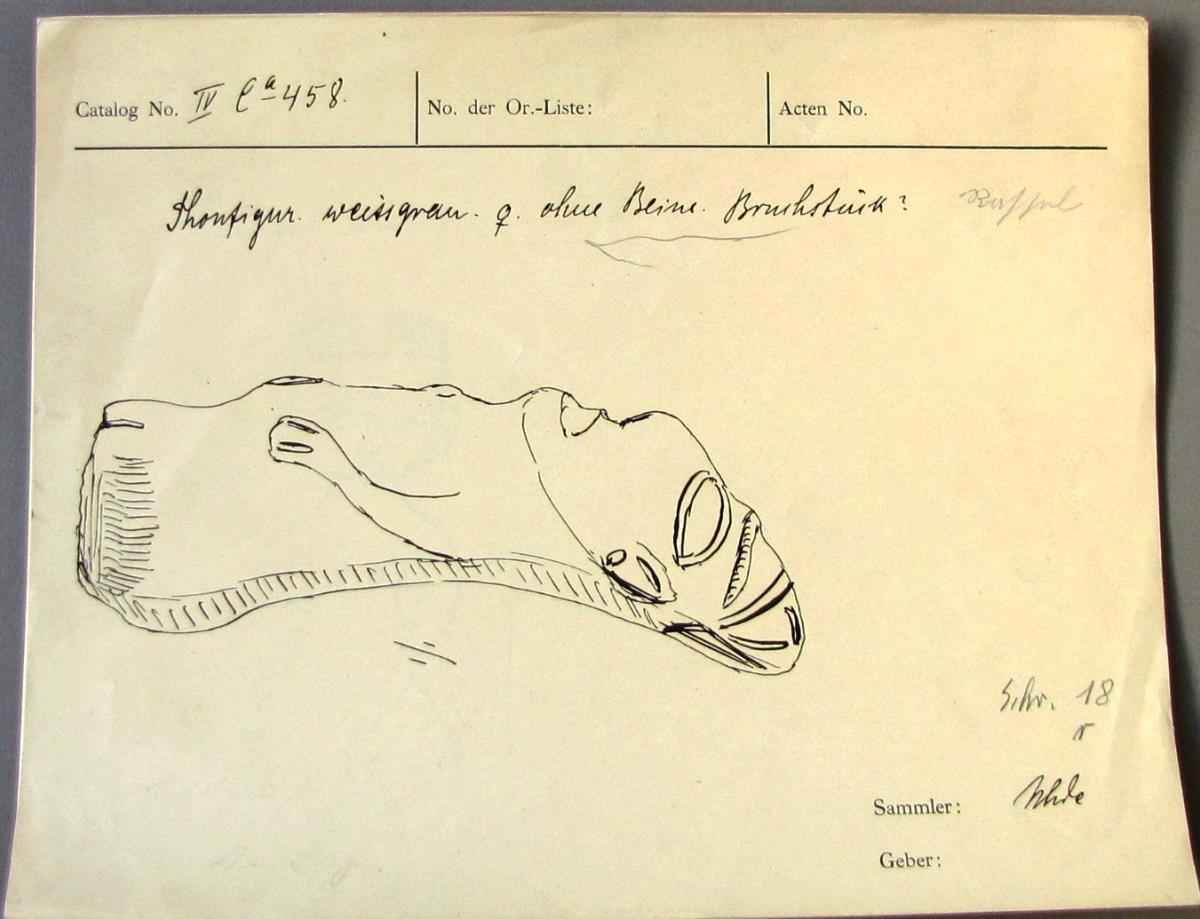 Catalog No. IV Ca 458. No. der Or.-Liste: Acten No.
Thonfigur. weissgrau. ♀. ohne Beine. Bruchstück? Rassel
Schr. 18
r
Sammler: Uhde
Geber: